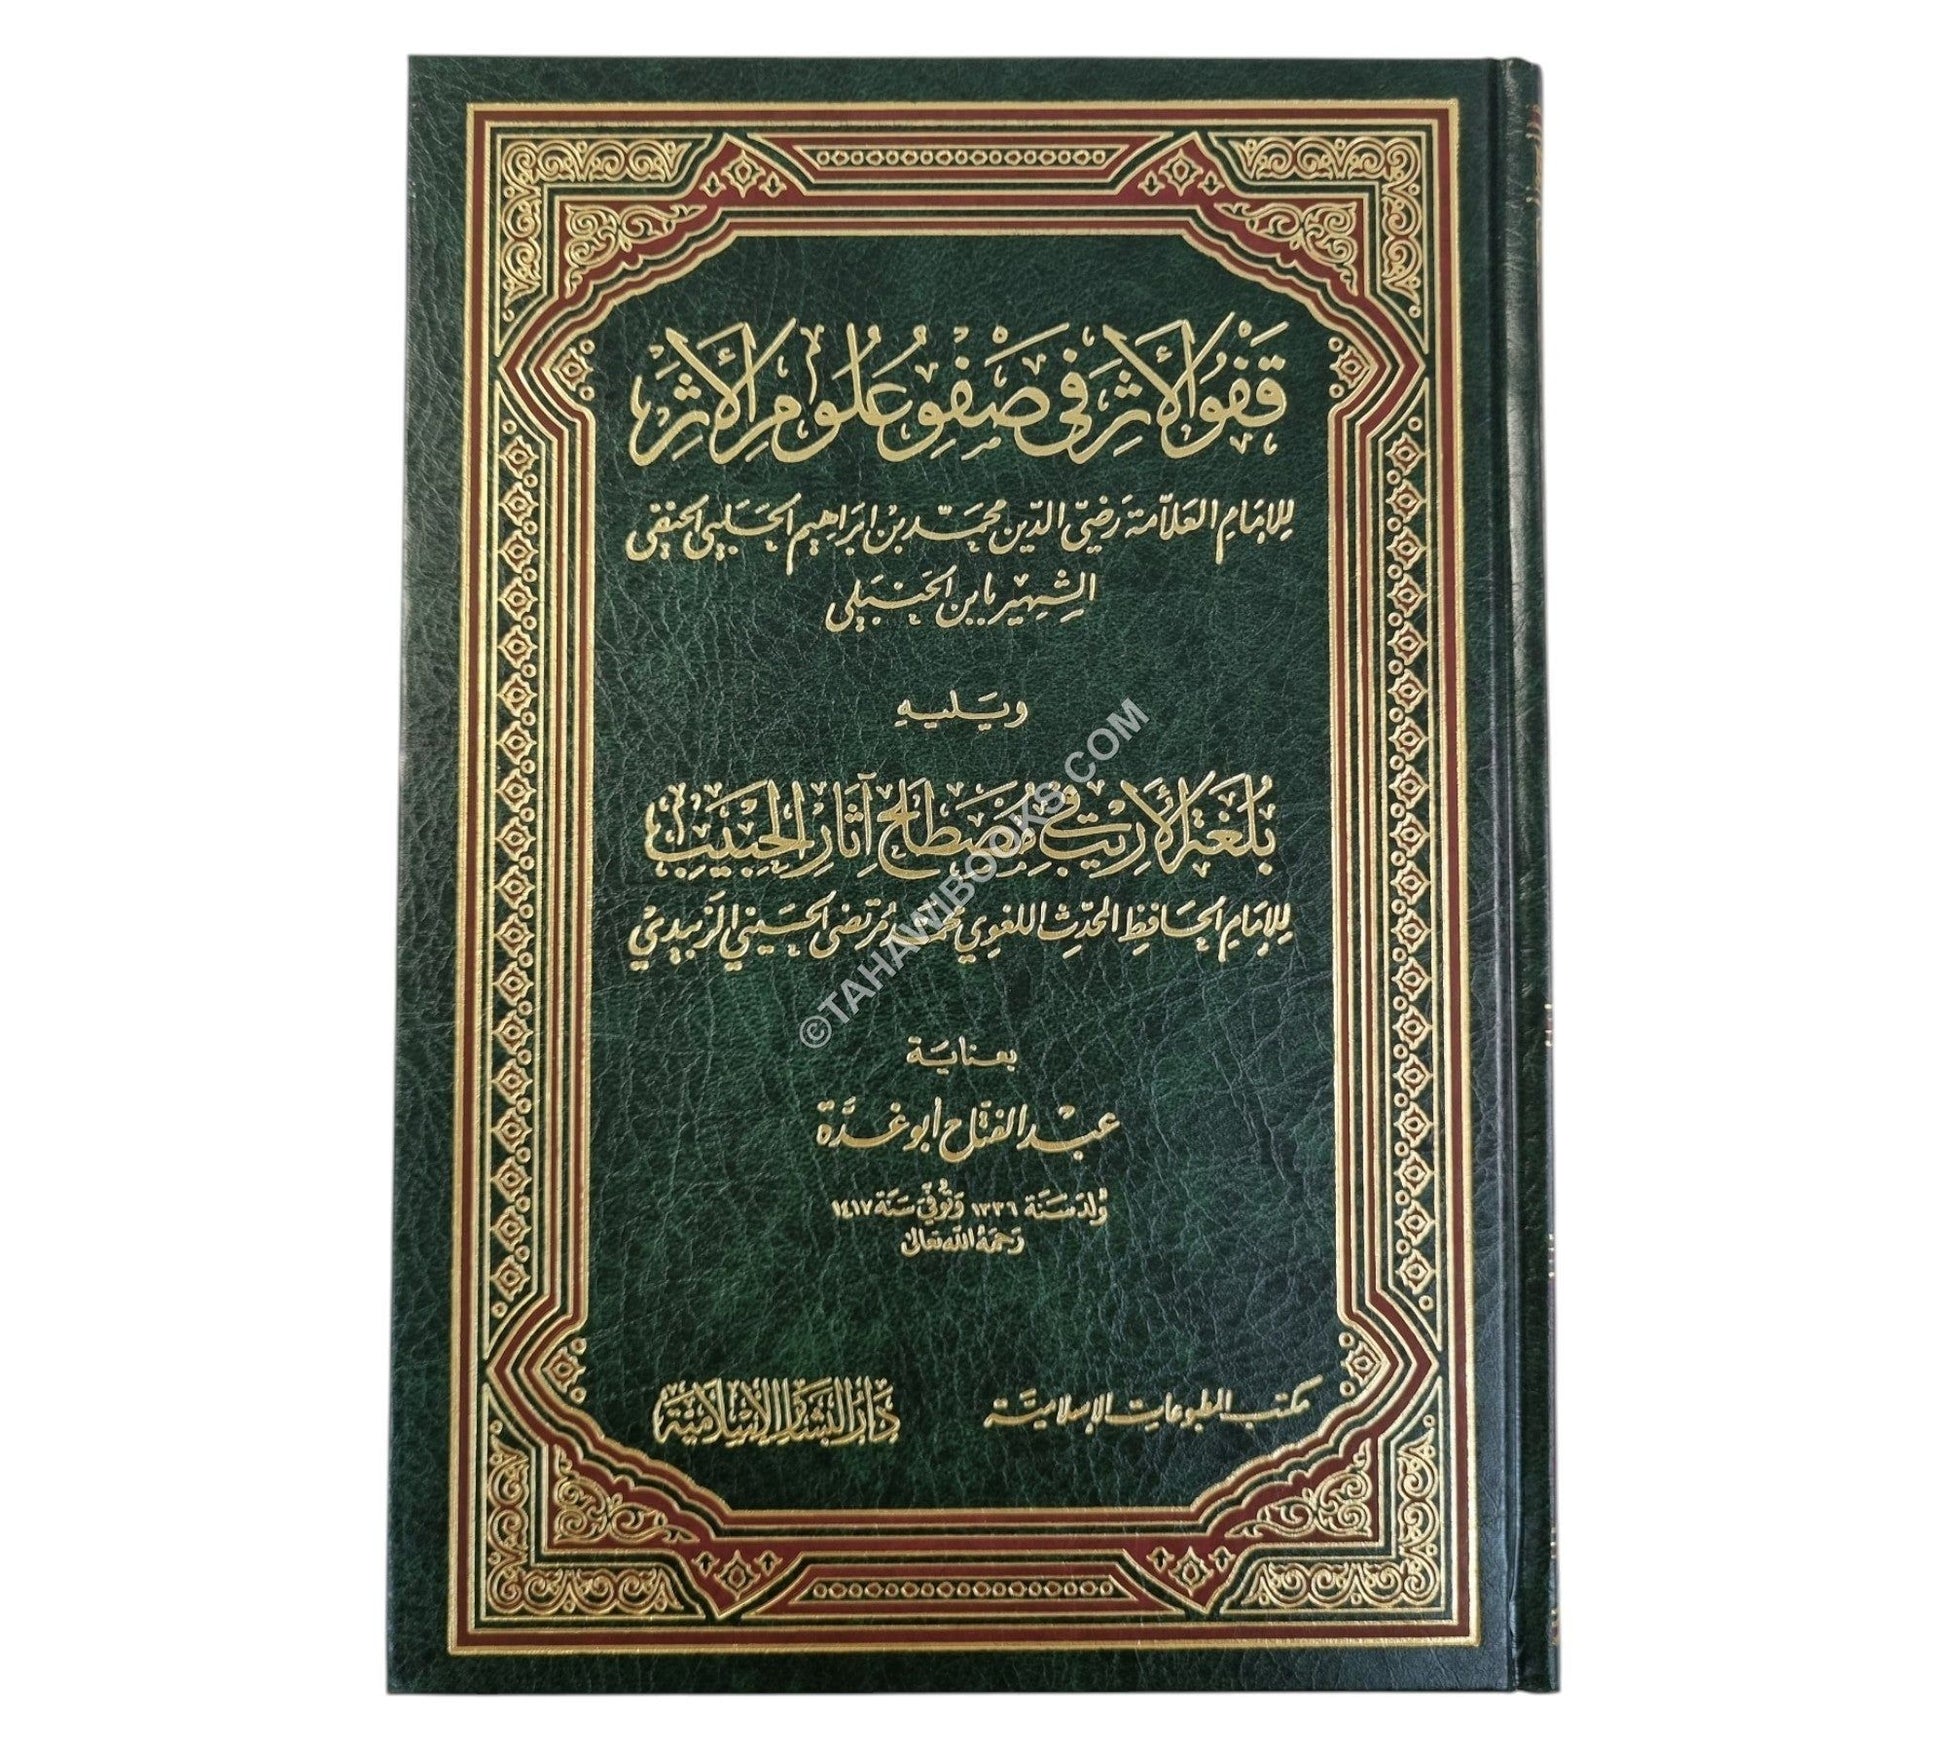 قَفْوُ الأَثَرِ فِي صَفْوِ عُلُومِ الأَثَرِ
لِلإِمَامِ العَلَّامَة رَضِيّ الدِّين محمَّد بن إبرَاهِيم الحَلَبِي الحَنَفِي
الشهير بابن الحَنبَلي
ويَليه
بُلْغَةُ الأَرِيبِ فِي مُصْطَلَحِ آثَارِ الحَبِيبِ
لِلإِمَامِ الحَافِظِ المحَدِّثِ اللغوِي محمَّد مُرتَضَى الحسَيني الزَّبيدِي
©TAHAWIBOOKS.COM
بعنَايَة
عبْد الفتَّاح أبو غدَّة
وُلِدَ سَنَة ١٣٣٦ وَتُوفِّيَ سَنَة ١٤١٧
رَحِمَهُ اللّه تعَالىٰ
مكتب المطبوعات الإسلاميَّة
دَارُ البَشَائِرِ الإِسْلَامِيَّة